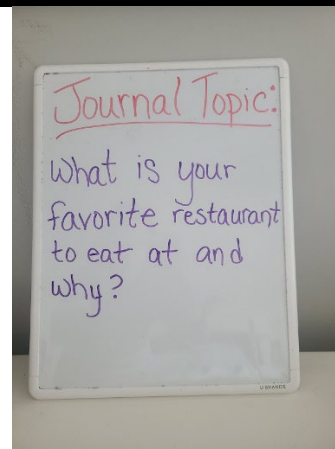 Journal Topic:
What is your
favorite restaurant
to eat at and
why?
U BRANDS